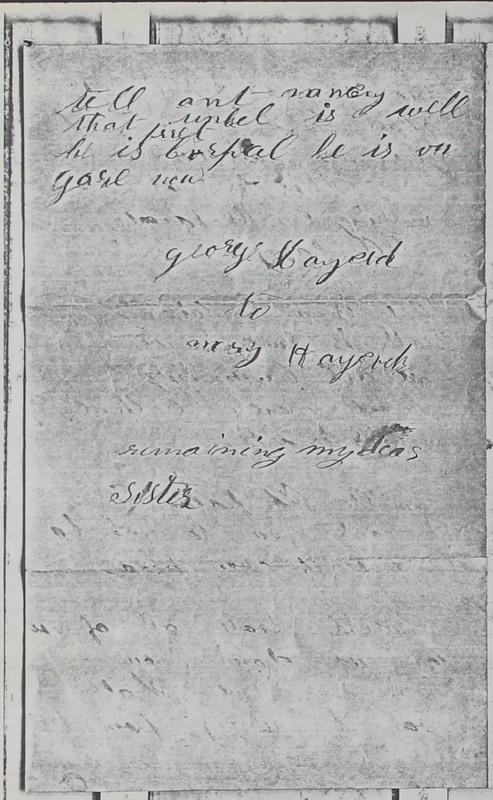 tell ant nancy
that unkel is well
he is corpral he is on
gard now
george Hayerd
to
mary Hayerd
remaining my dear
sister